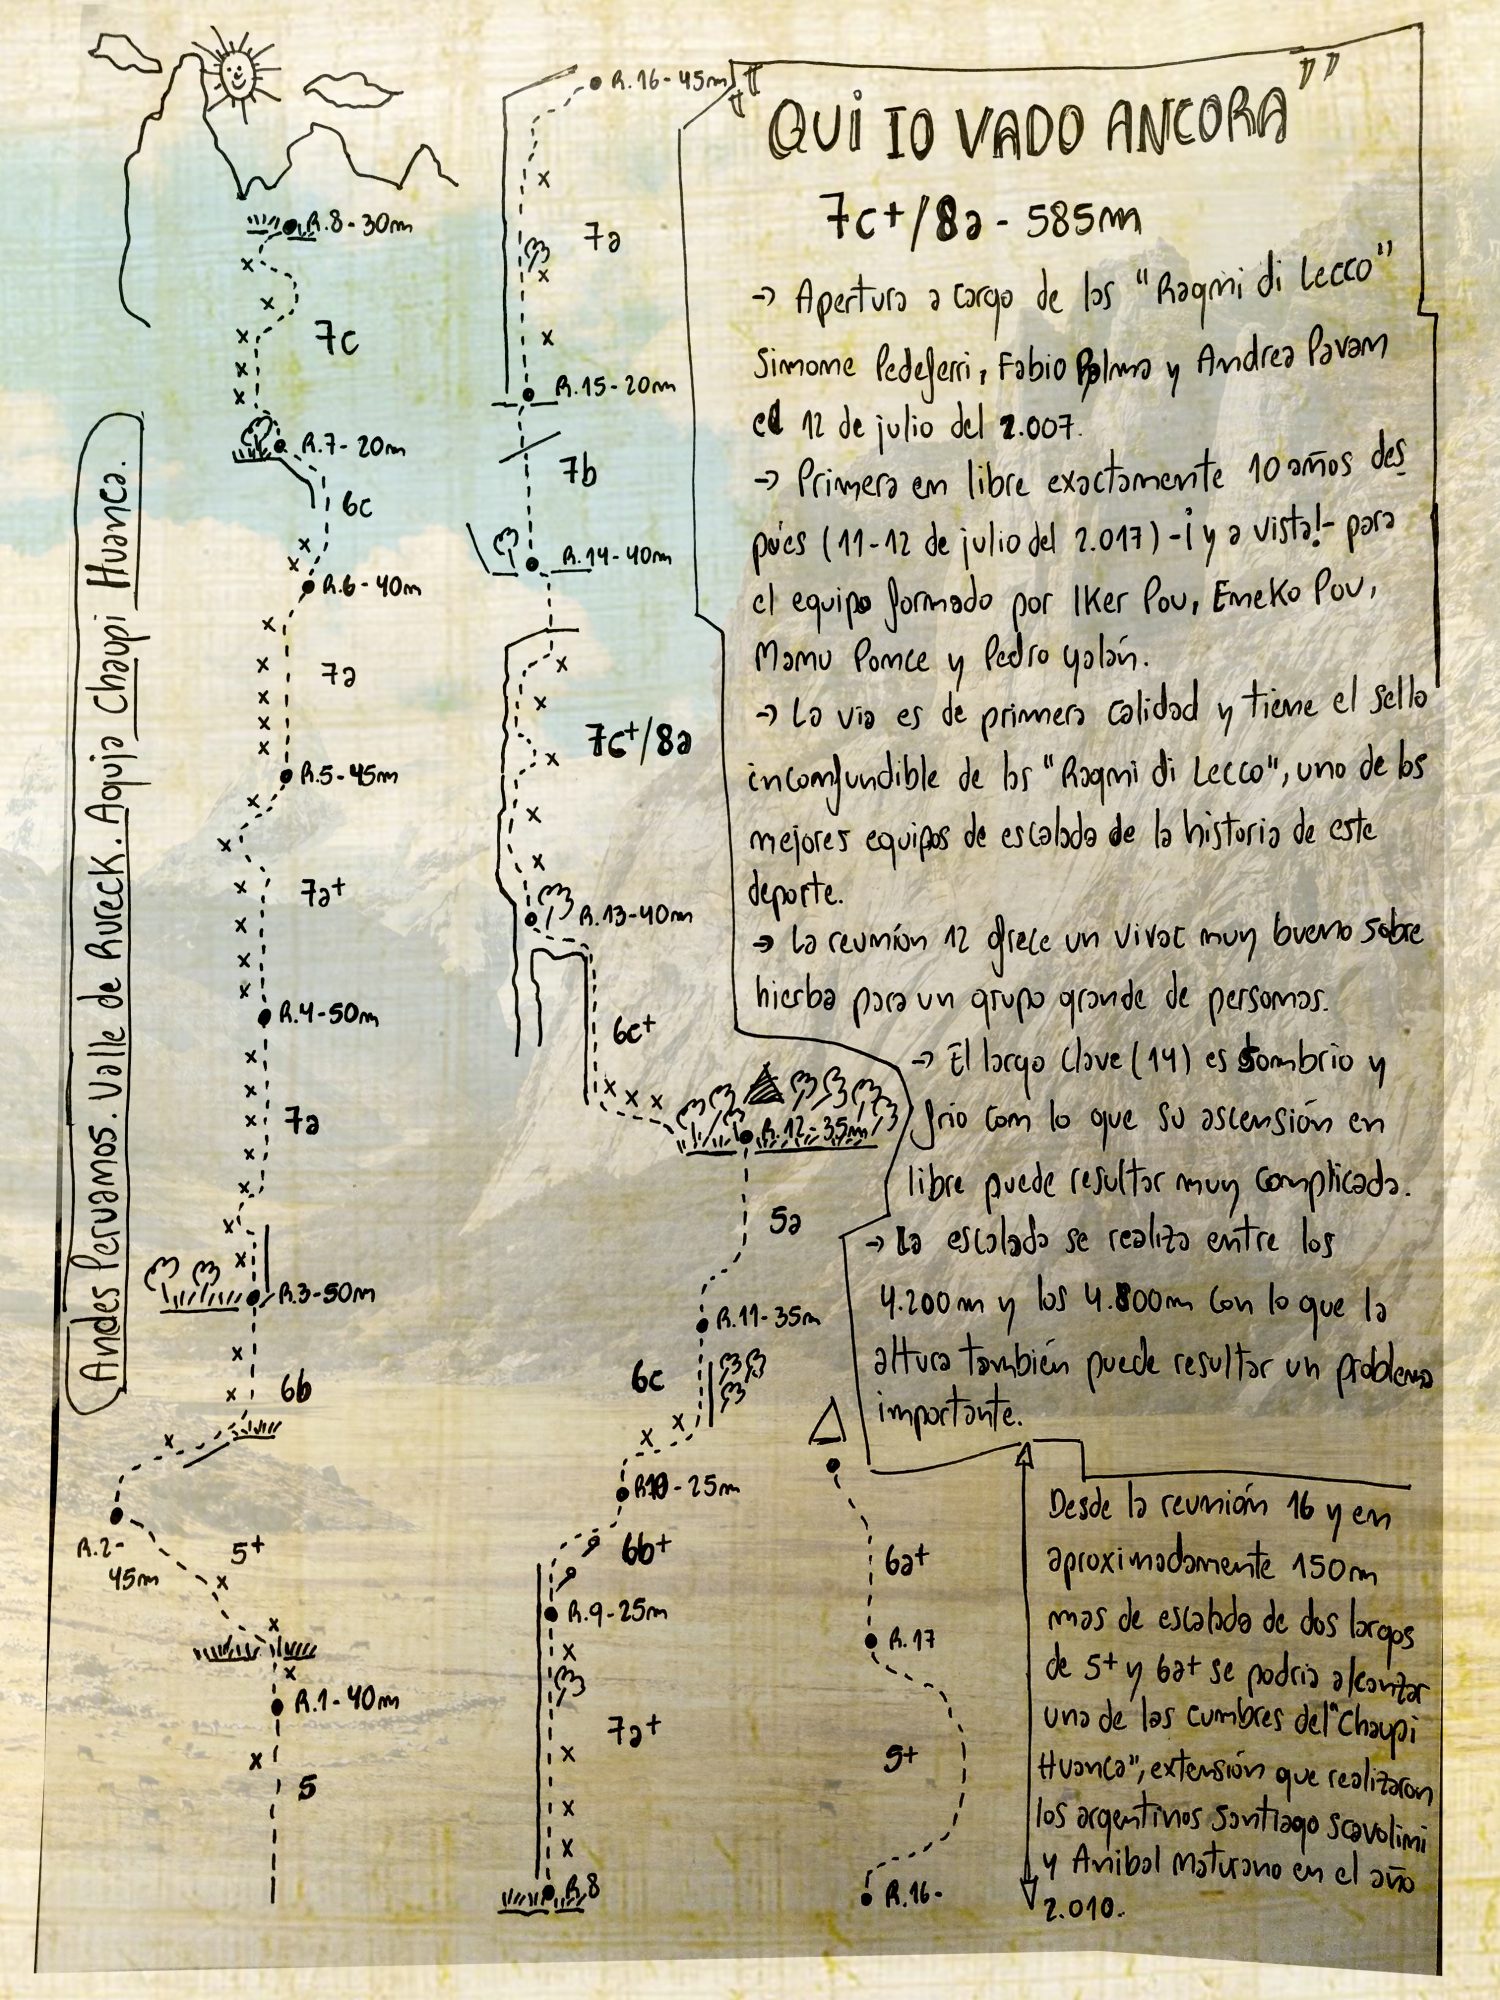 Andes Peruanos. Valle de Rureck. Aguja Chaupi Huanca.
R.8 - 30m
7c
R.7 - 20m
6c
R.6 - 40m
7a
R.5 - 45m
7a+
R.4 - 50m
7a
R.3 - 50m
6b
R.2 -
45m
5+
R.1 - 40m
5
R.16 - 45m
7a
R.15 - 20m
7b
R.14 - 40m
7c+/8a
R.13 - 40m
6c+
R.12 - 35m
5a
R.11 - 35m
6c
R10 - 25m
6b+
R.9 - 25m
7a+
R.8
"QUI IO VADO ANCORA"
7c+/8a - 585m
→ Apertura a cargo de los "Ragni di Lecco"
Simone Pedeferri, Fabio Palma y Andrea Pavan
el 12 de julio del 2.007.
→ Primera en libre exactamente 10 años des
pués (11-12 de julio del 2.017) -¡y a vista!- para
el equipo formado por Iker Pou, Eneko Pou,
Manu Ponce y Pedro Galán.
→ La via es de primera calidad y tiene el sello
inconfundible de los "Ragni di Lecco", uno de los
mejores equipos de escalada de la historia de este
deporte.
→ La reunión 12 ofrece un vivac muy bueno sobre
hierba para un grupo grande de personas.
→ El largo clave (14) es sombrio y
frio con lo que su ascensión en
libre puede resultar muy complicada.
→ La escalada se realiza entre los
4.200m y los 4.800m con lo que la
altura también puede resultar un problema
importante.
6a+
R.17
5+
R.16 -
Desde la reunión 16 y en
aproximadamente 150m
mas de escalada de dos largos
de 5+ y 6a+ se podria alcanzar
una de las cumbres del "Chaupi
Huanca", extensión que realizaron
los argentinos Santiago Scavolini
y Anibal Maturano en el año
2.010.